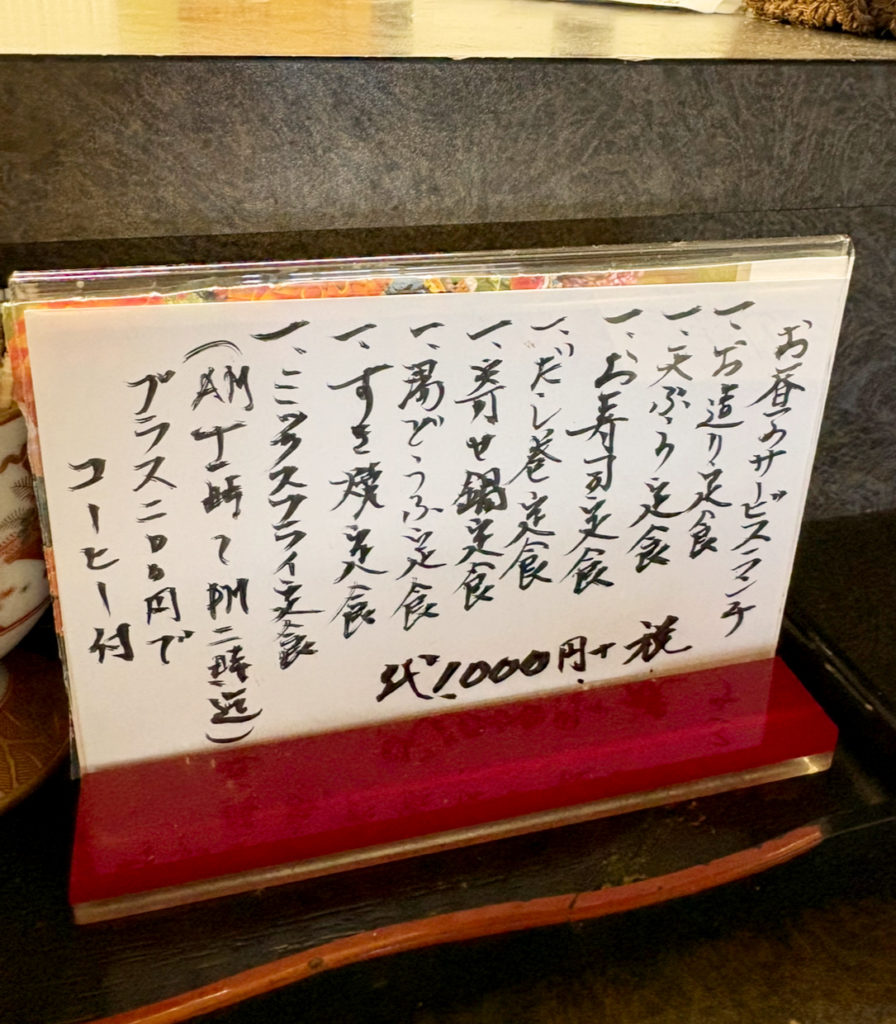 お昼のサービスランチ
一、お造り定食
一、天ぷら定食
一、お寿司定食
一、だし巻定食
一、寄せ鍋定食
一、湯どうふ定食
一、すき焼定食
一、ミックスフライ定食
代、1000円+税
(AM十一時〜PM二時迄)
プラス二〇〇円で
コーヒー付